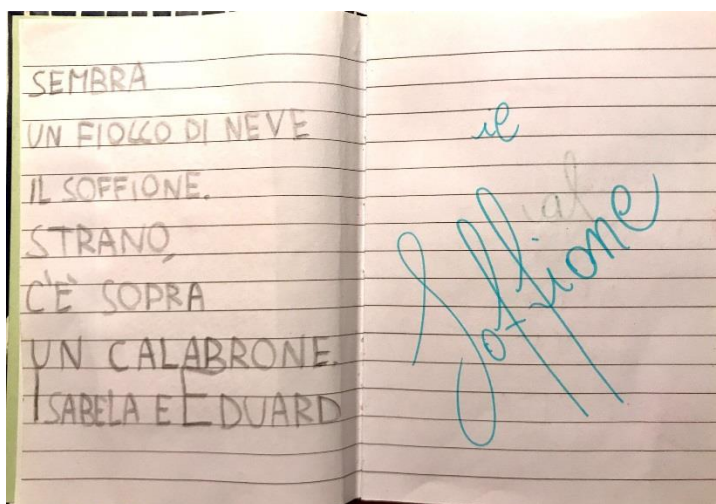 SEMBRA
UN FIOCCO DI NEVE
IL SOFFIONE.
STRANO,
C'È SOPRA
UN CALABRONE.
ISABELA E EDUARD
il
Soffione